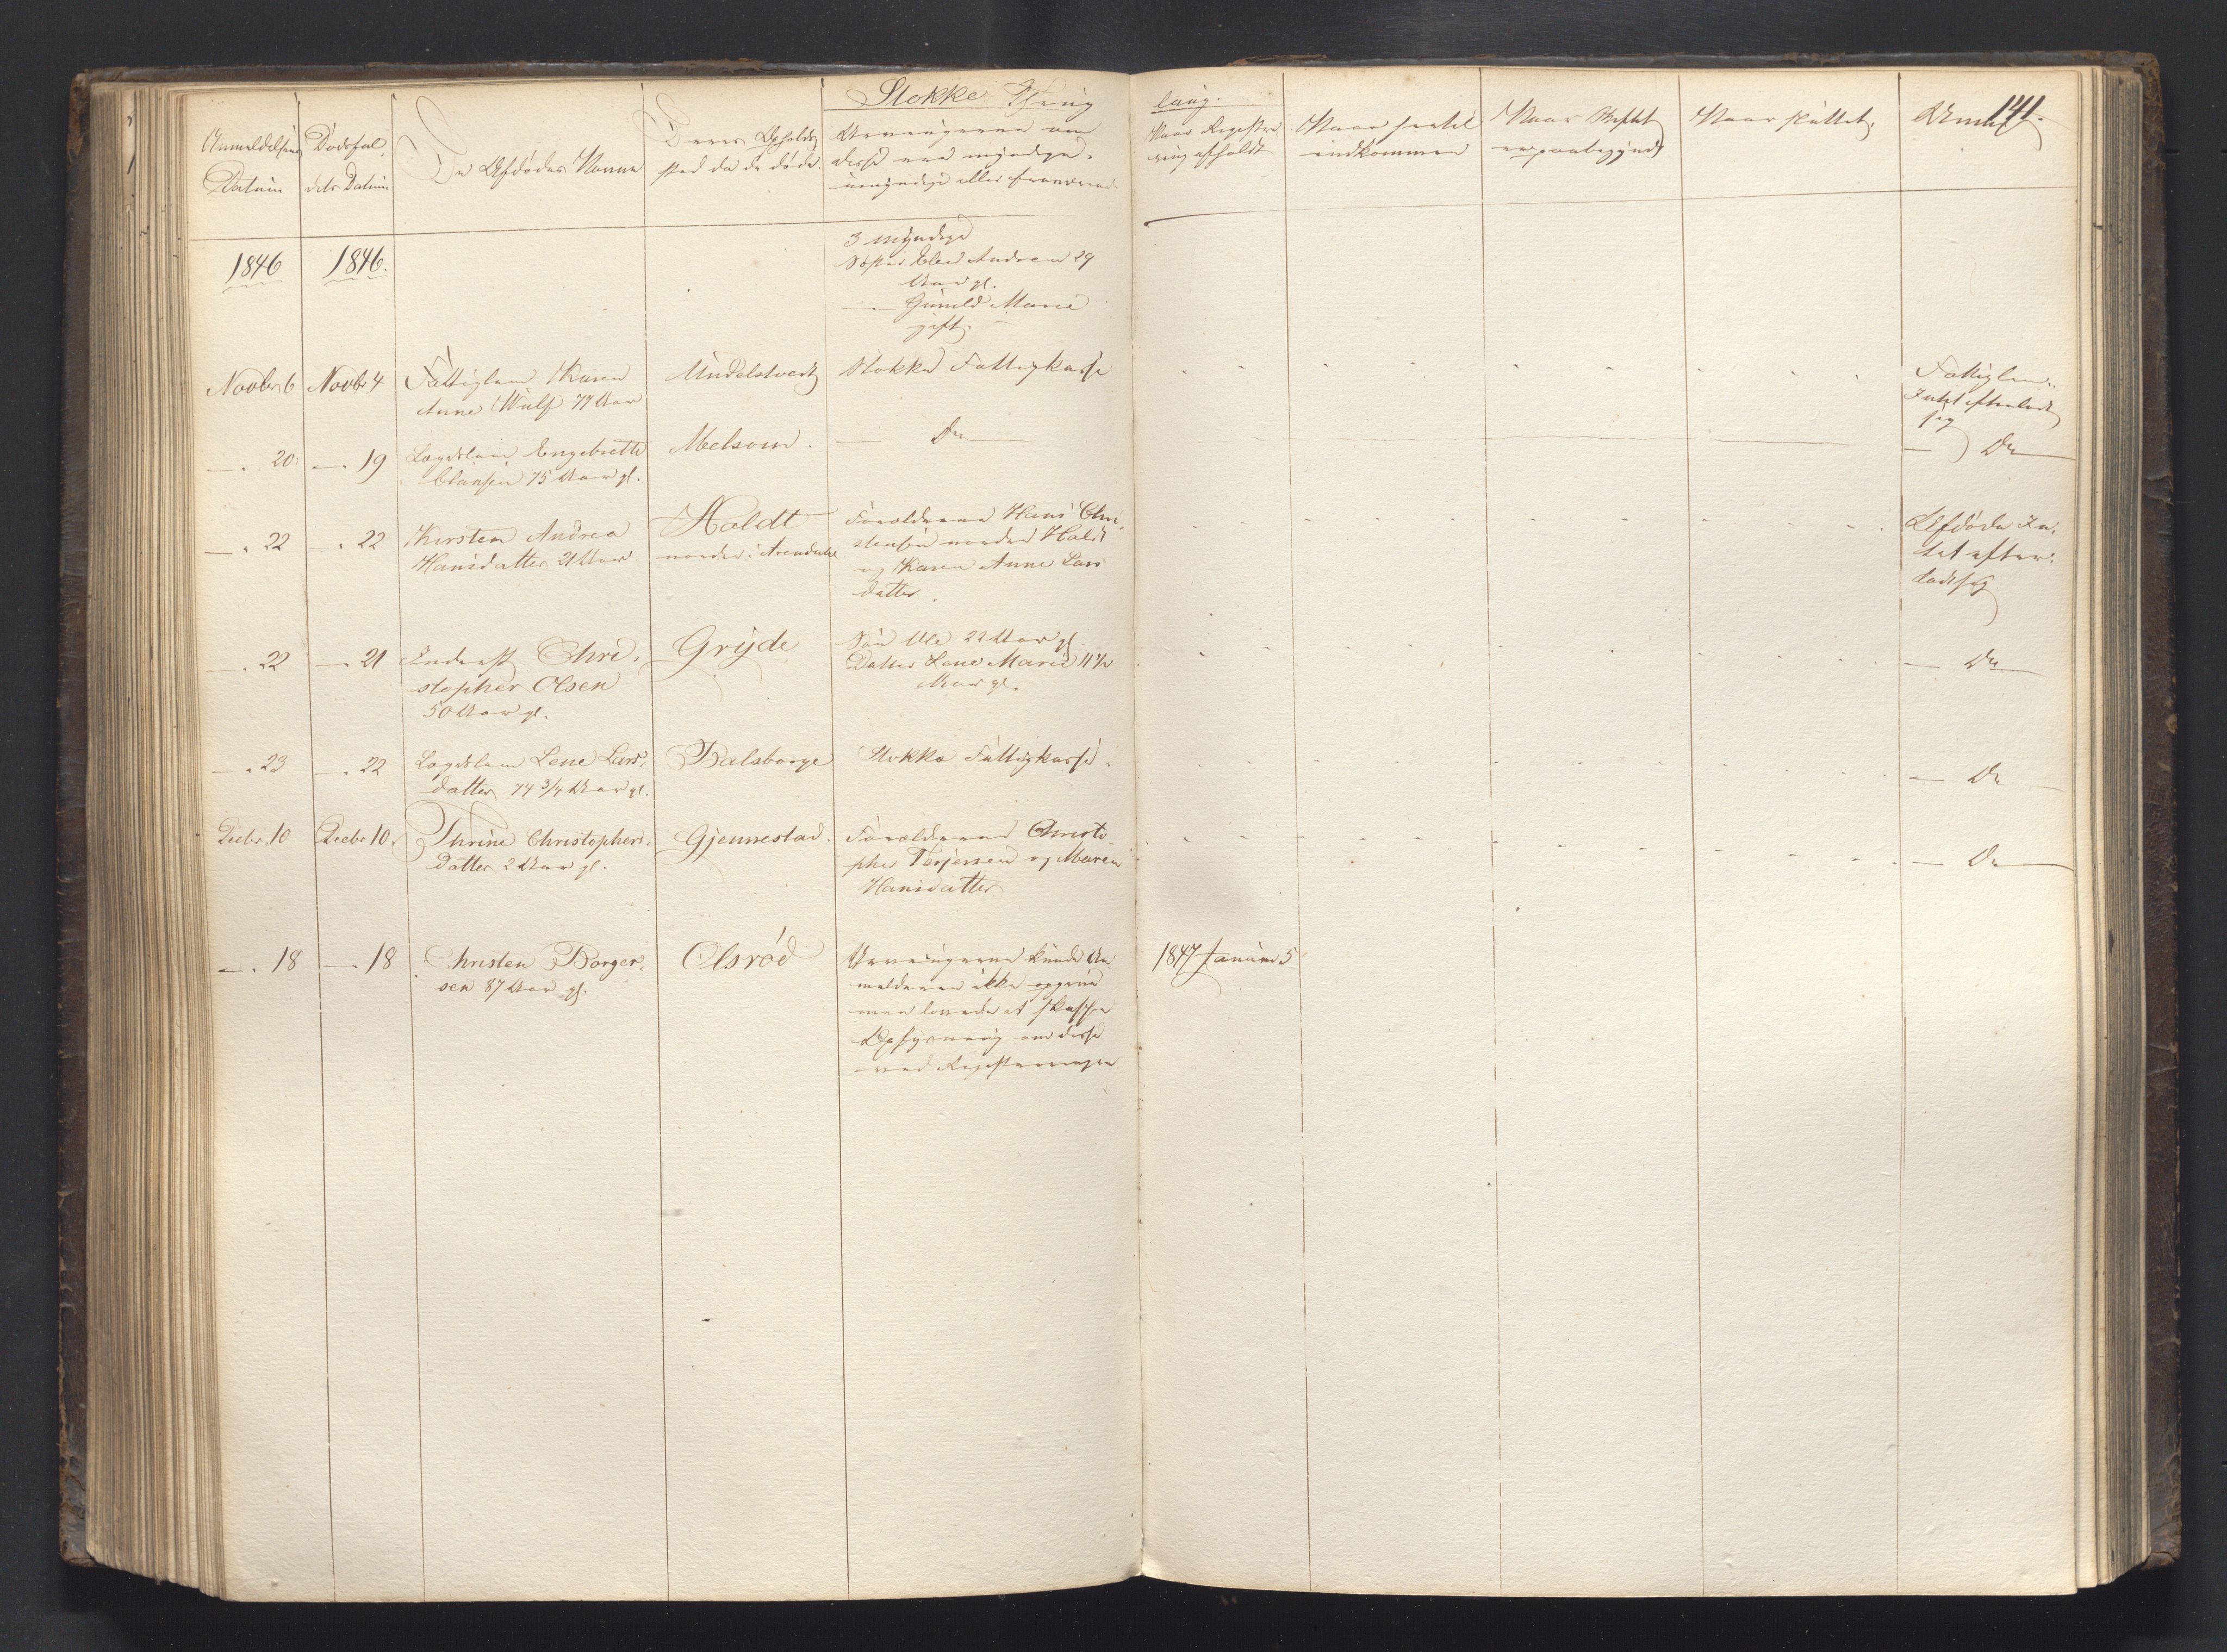 Stokke Thing
laug.
141.
Anmeldelsens
Datum
Dødsfal-
dets Datum
De Afdødes Navne
Deres Opholds
sted da de døde.
Arvingerne om
disse ere myndige,
umyndige eller fraværende
Naar Registre
ring afholdt
Naar
indkommen
Naar Skiftet
er paabegyndt
Naar sluttet.
1846
1846.
3 myndige
Søster Elen Andrea 29
Aar gl.
— Gunild Marie
gift
Novbr 6
Novbr 4
Fattiglem Karen
Anne Wulf 77 Aar
Undelstvedt
Stokke Fattigkasse
Fattiglem
Intet efterladt
sig
— . 20.
— . 19
Lægdslem Engebrette
Clausen 75 Aar gl.
Melsom.
— Do —
— Do —
— . 22
— . 22
Kirsten Andrea
Hansdatter 21 Aar
Holdt
nordre i Arendal
Forældrene Hans Chri-
stensen nordre Holdt
og Karen Anne Lars
datter.
Afdøde In-
tet efter-
ladt sig
— . 22
— . 21
Inderst Chri-
stopher Olsen
50 Aar gl.
Gryde
Søn Ole 22 Aar gl
Datter Lene Marie 11 1/2
Aar gl.
— Do —
— . 23
— . 22
Lægdslem Lene Lars-
datter 74 3/4 Aar gl.
Balsborge
Stokke Fattigkasse.
— Do —
Decbr. 10
Decbr 10.
Thrine Christophers-
datter 2 Aar gl.
Gjennestad.
Forældrene Christo-
pher Torjersen og Maren
Hansdatter
— Do —
— . 18
— . 18
Christen Borger-
sen 87 Aar gl.
Olsrød
Arvingerne kunde An-
melderen ikke opgive
men lovede at skaffe
Oplysning om disse
ved Registreringen
1847 Januar 5